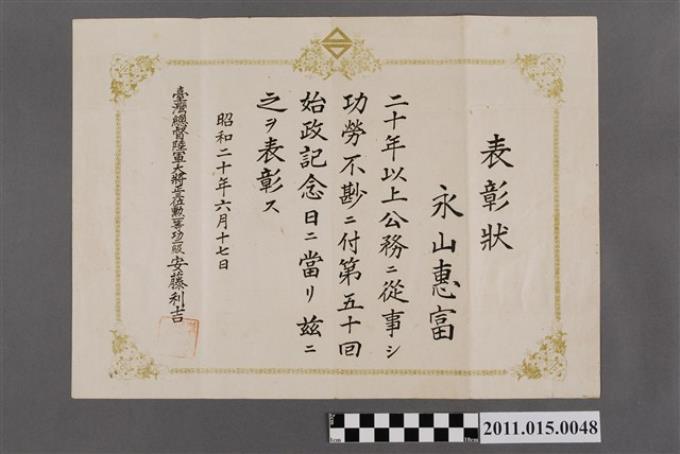 表彰狀
永山惠富
二十年以上公務ニ從事シ
功勞不尠ニ付第五十回
始政記念日ニ當リ茲ニ
之ヲ表彰ス
昭和二十年六月十七日
臺灣總督陸軍大將正三位勲一等功三級安藤利吉
2011.015.0048